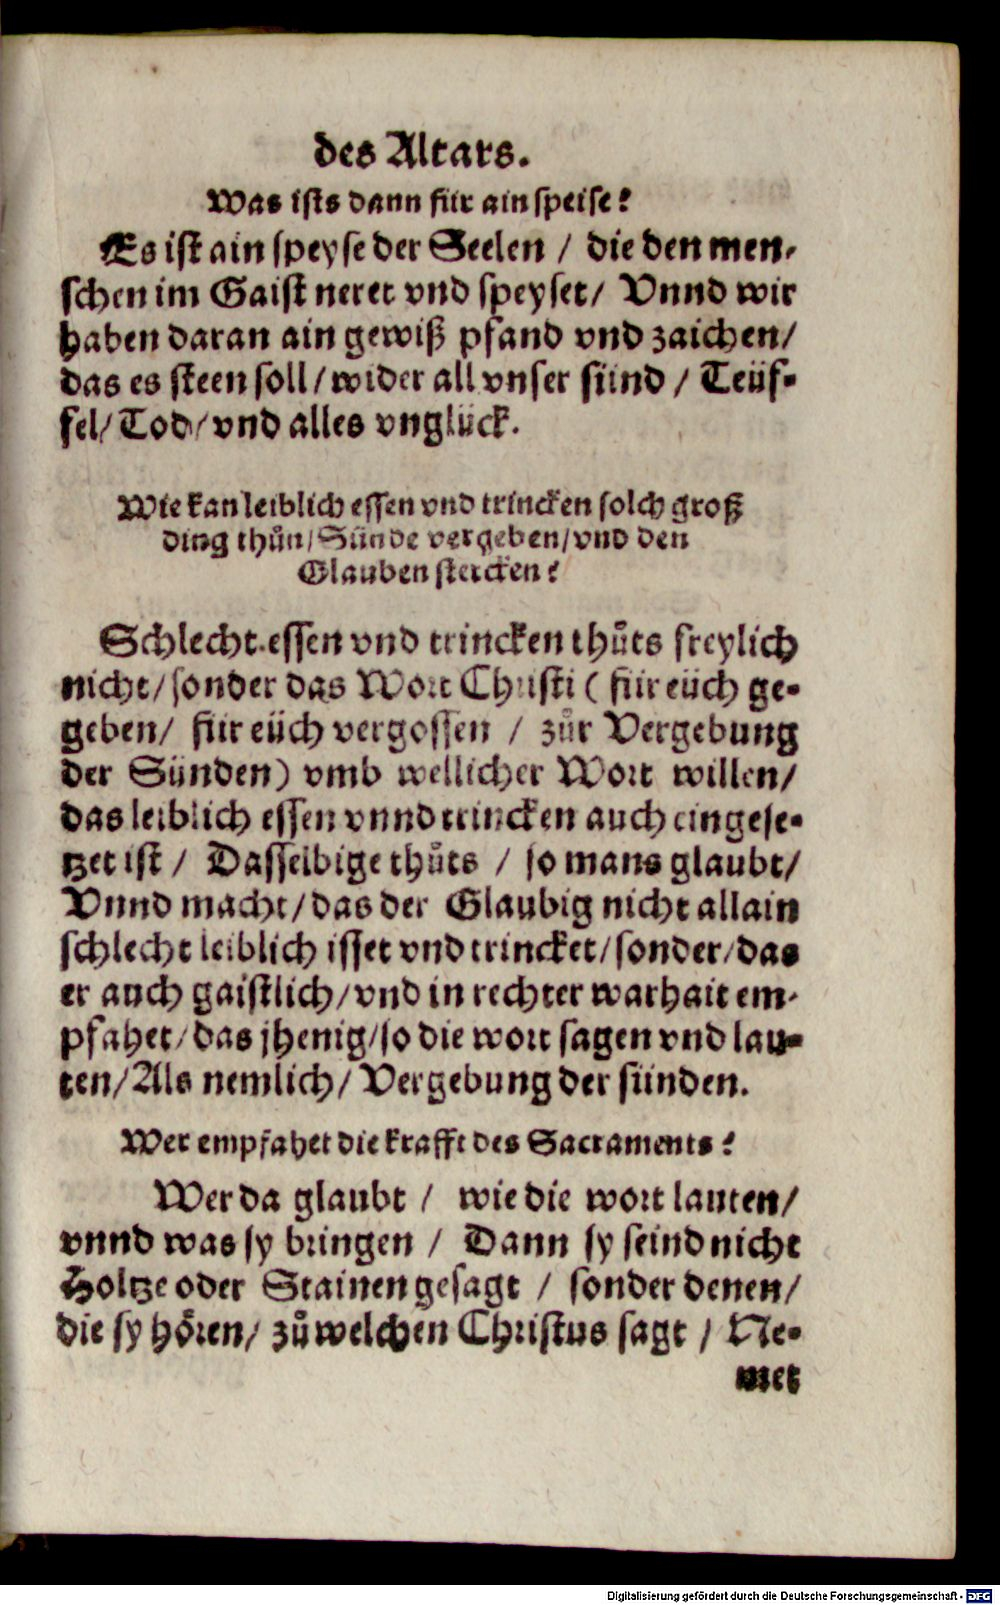 des Altars.
Was ists dann für ain speise?
Es ist ain speyse der Seelen / die den men-
schen im Gaist neret vnd speyset / Vnnd wir
haben daran ain gewiß pfand vnd zaichen /
das es steen soll / wider all vnser sünd / Teüf-
fel / Tod / vnd alles vnglück.
Wie kan leiblich essen vnd trincken solch groß
ding thůn / Sünde vergeben / vnd den
Glauben stercken?
Schlecht essen vnd trincken thůts freylich
nicht / sonder das Wort Christi ( für eüch ge-
geben / für eüch vergossen / zůr Vergebung
der Sünden) vmb wellicher Wort willen /
das leiblich essen vnnd trincken auch eingese-
tzet ist / Dasselbige thůts / so mans glaubt /
Vnnd macht / das der Glaubig nicht allain
schlecht leiblich isset vnd trincket / sonder / das
er auch gaistlich / vnd in rechter warhait em-
pfahet / das jhenig / so die wort sagen vnd lau-
ten / Als nemlich / Vergebung der sünden.
Wer empfahet die krafft des Sacraments?
Wer da glaubt / wie die wort lauten /
vnnd was sy bringen / Dann sy seind nicht
Holtze oder Stainen gesagt / sonder denen /
die sy hören / zů welchen Christus sagt / Ne-
met
Digitalisierung gefördert durch die Deutsche Forschungsgemeinschaft - DFG